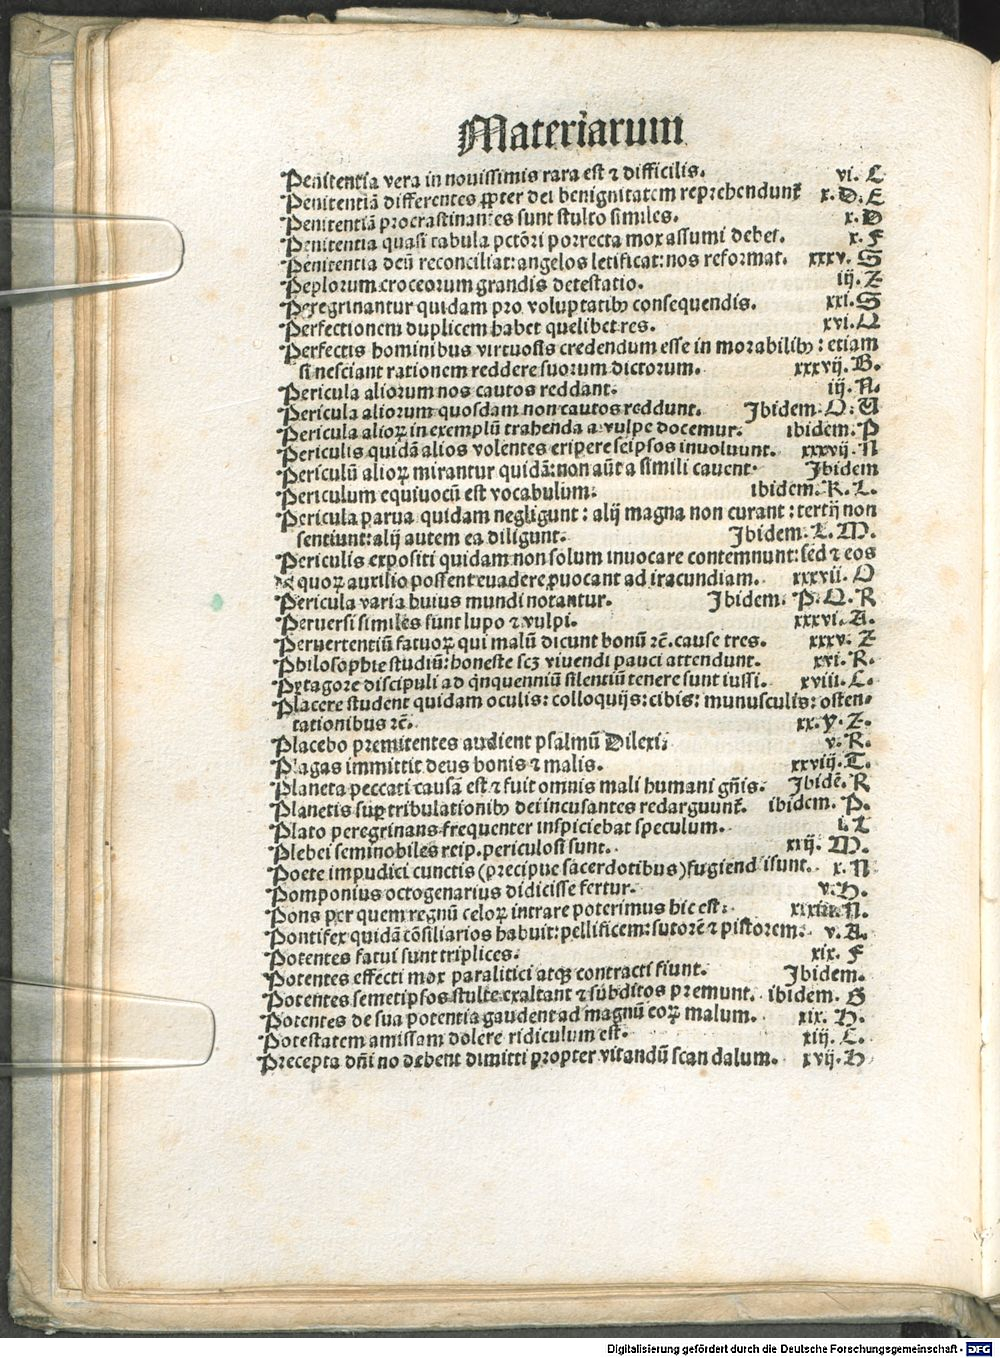 Materiarum
Penitentia vera in nouissimis rara est ⁊ difficilis. vi. C
Penitentiã differentes ꝓpter dei benignitatem reprehendunt̃ x. D. E
Penitentiã procrastinantes sunt stulto similes. x. D
Penitentia quasi tabula pctõri porrecta mox assumi debet. x. F
Penitentia deũ reconciliat: angelos letificat: nos reformat. xxxv. S
Peplorum croceorum grandis detestatio. iij. Z
Peregrinantur quidam pro voluptatibꝰ consequendis. xxi. S
Perfectionem duplicem habet quelibet res. xvi. Q
Perfectis hominibus virtuosis credendum esse in morabilibꝰ: etiam
si nesciant rationem reddere suorum dictorum. xxxvij. B.
Pericula aliorum nos cautos reddant. iij. N.
Pericula aliorum quosdam non cautos reddunt. Ibidem. O. U
Pericula alioꝝ in exemplũ trahenda a vulpe docemur. ibidem. P
Periculis quidã alios volentes eripere seipsos inuoluunt. xxxvij. N
Periculũ alioꝝ mirantur quidã: non aũt a simili cauent. Ibidem
Periculum equiuocũ est vocabulum. ibidem. K. L.
Pericula parua quidam negligunt: alij magna non curant: tertij non
sentiunt: alij autem ea diligunt. Ibidem. L. M.
Periculis expositi quidam non solum inuocare contemnunt: sed ⁊ eos
quoꝝ auxilio possent euadere ꝓuocant ad iracundiam. xxxvii. O
Pericula varia huius mundi notantur. Ibidem. P. Q. R
Peruersi similes sunt lupo ⁊ vulpi. xxxvi. A.
Peruertentiũ fatuoꝝ qui malũ dicunt bonũ ⁊c̃. cause tres. xxxv. Z
Philosophie studiũ: honeste scꝫ viuendi pauci attendunt. xvi. R.
Pytagore discipuli ad q̃nquenniũ silentiũ tenere sunt iussi. xviii. C.
Placere student quidam oculis: colloquijs: cibis: munusculis: osten-
tationibus ⁊c̃. xx. Y. Z.
Placebo premitentes audient psalmũ Dilexi: v. R.
Plagas immittit deus bonis ⁊ malis. xxviij. T.
Planeta peccati causã est ⁊ fuit omnis mali humani gñis. Ibidẽ. R
Planetis suꝑ tribulationibꝰ dei incusantes redarguunt̃. ibidem. P.
Plato peregrinans frequenter inspiciebat speculum. i. L
Plebei seminobiles reip. periculosi sunt. xxij. M.
Poete impudici cunctis (precipue sacerdotibus) fugiend isunt. x. N
Pomponius octogenarius didicisse fertur. v. H.
Pons per quem regnũ celoꝝ intrare poterimus hic est: N.
Pontifex quidã cõsiliarios habuit: pellificem: sutorẽ ⁊ pistorem: v. A.
Potentes fatui sunt triplices. xix. F
Potentes effecti mox paralitici atqꝫ contracti fiunt. Ibidem.
Potentes semetipsos stulte exaltant ⁊ subditos premunt. ibidem. G
Potentes de sua potentia gaudent ad magnũ eoꝝ malum. xix. H.
Potestatem amissam dolere ridiculum est. xiij. C.
Precepta dñi no debent dimitti propter vitandũ scan dalum. xvij. H
Digitalisierung gefördert durch die Deutsche Forschungsgemeinschaft - DFG